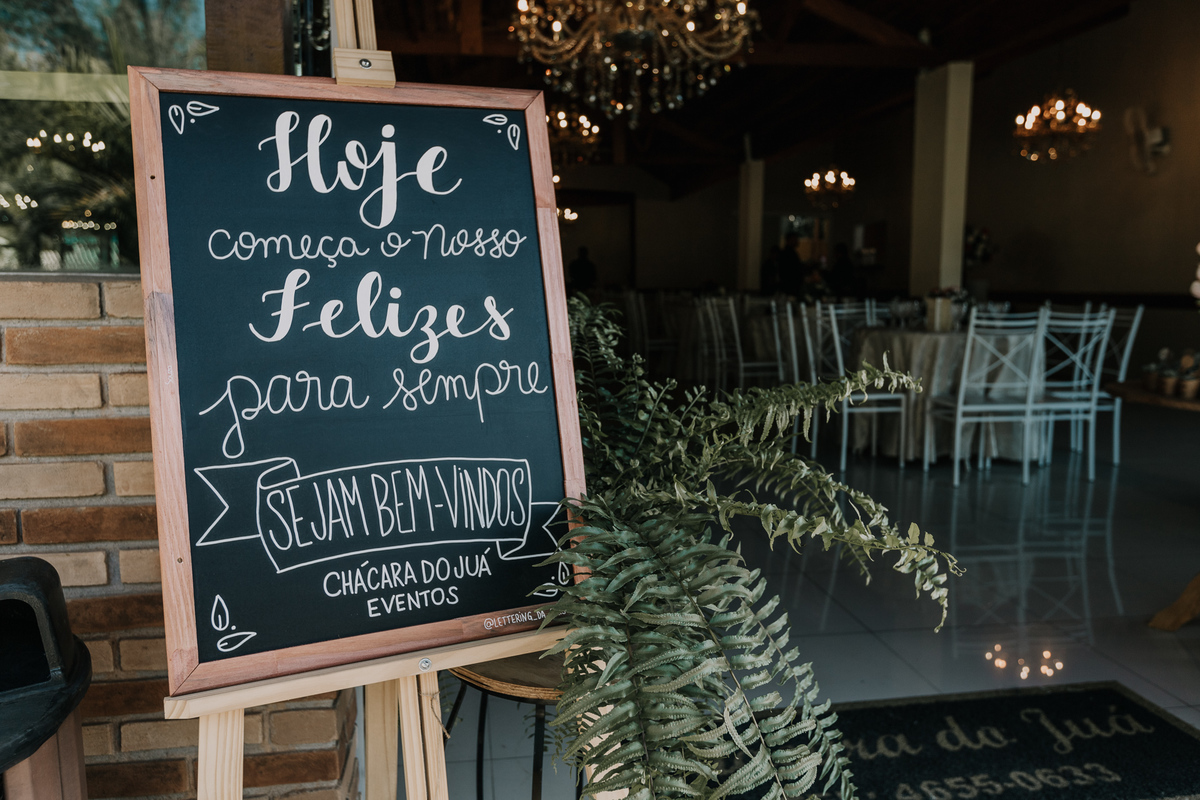 Hoje
começa o nosso
Felizes
para sempre
SEJAM BEM-VINDOS
CHÁCARA DO JUÁ
EVENTOS
@LETTERING_DA
ra do Juá
4655-0633